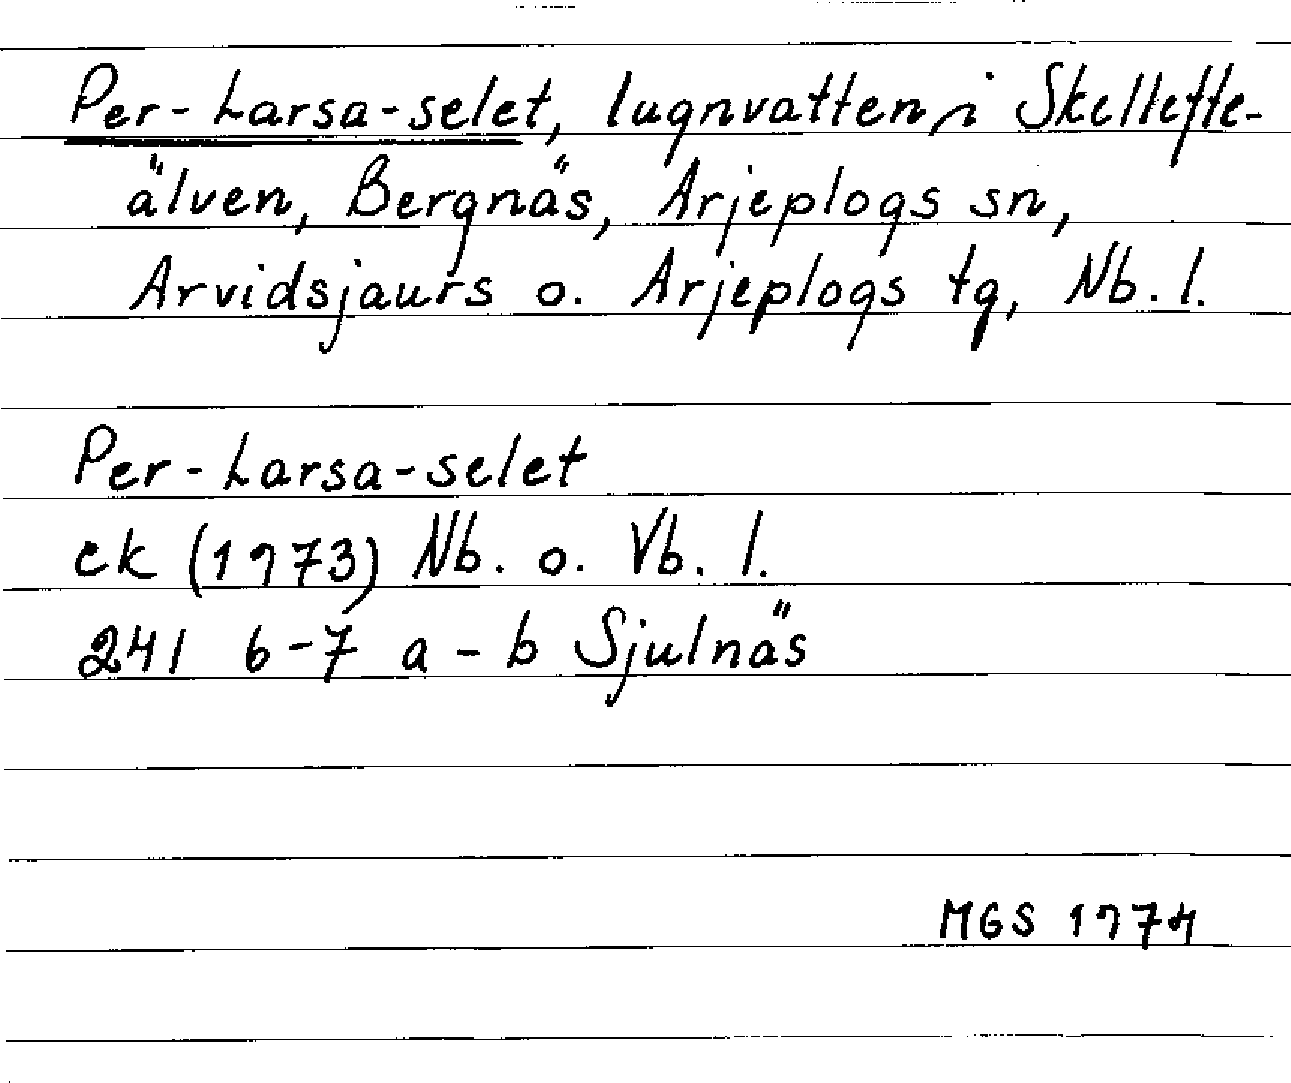 Per-Larsa-selet, lugnvatten i Skellefte-
älven, Bergnäs, Arjeplogs sn,
Arvidsjaurs o. Arjeplogs tg, Nb. l.
Per-Larsa-selet
ek (1973) Nb. o. Vb. l.
241 6-7 a-b Sjulnäs
MGS 1974